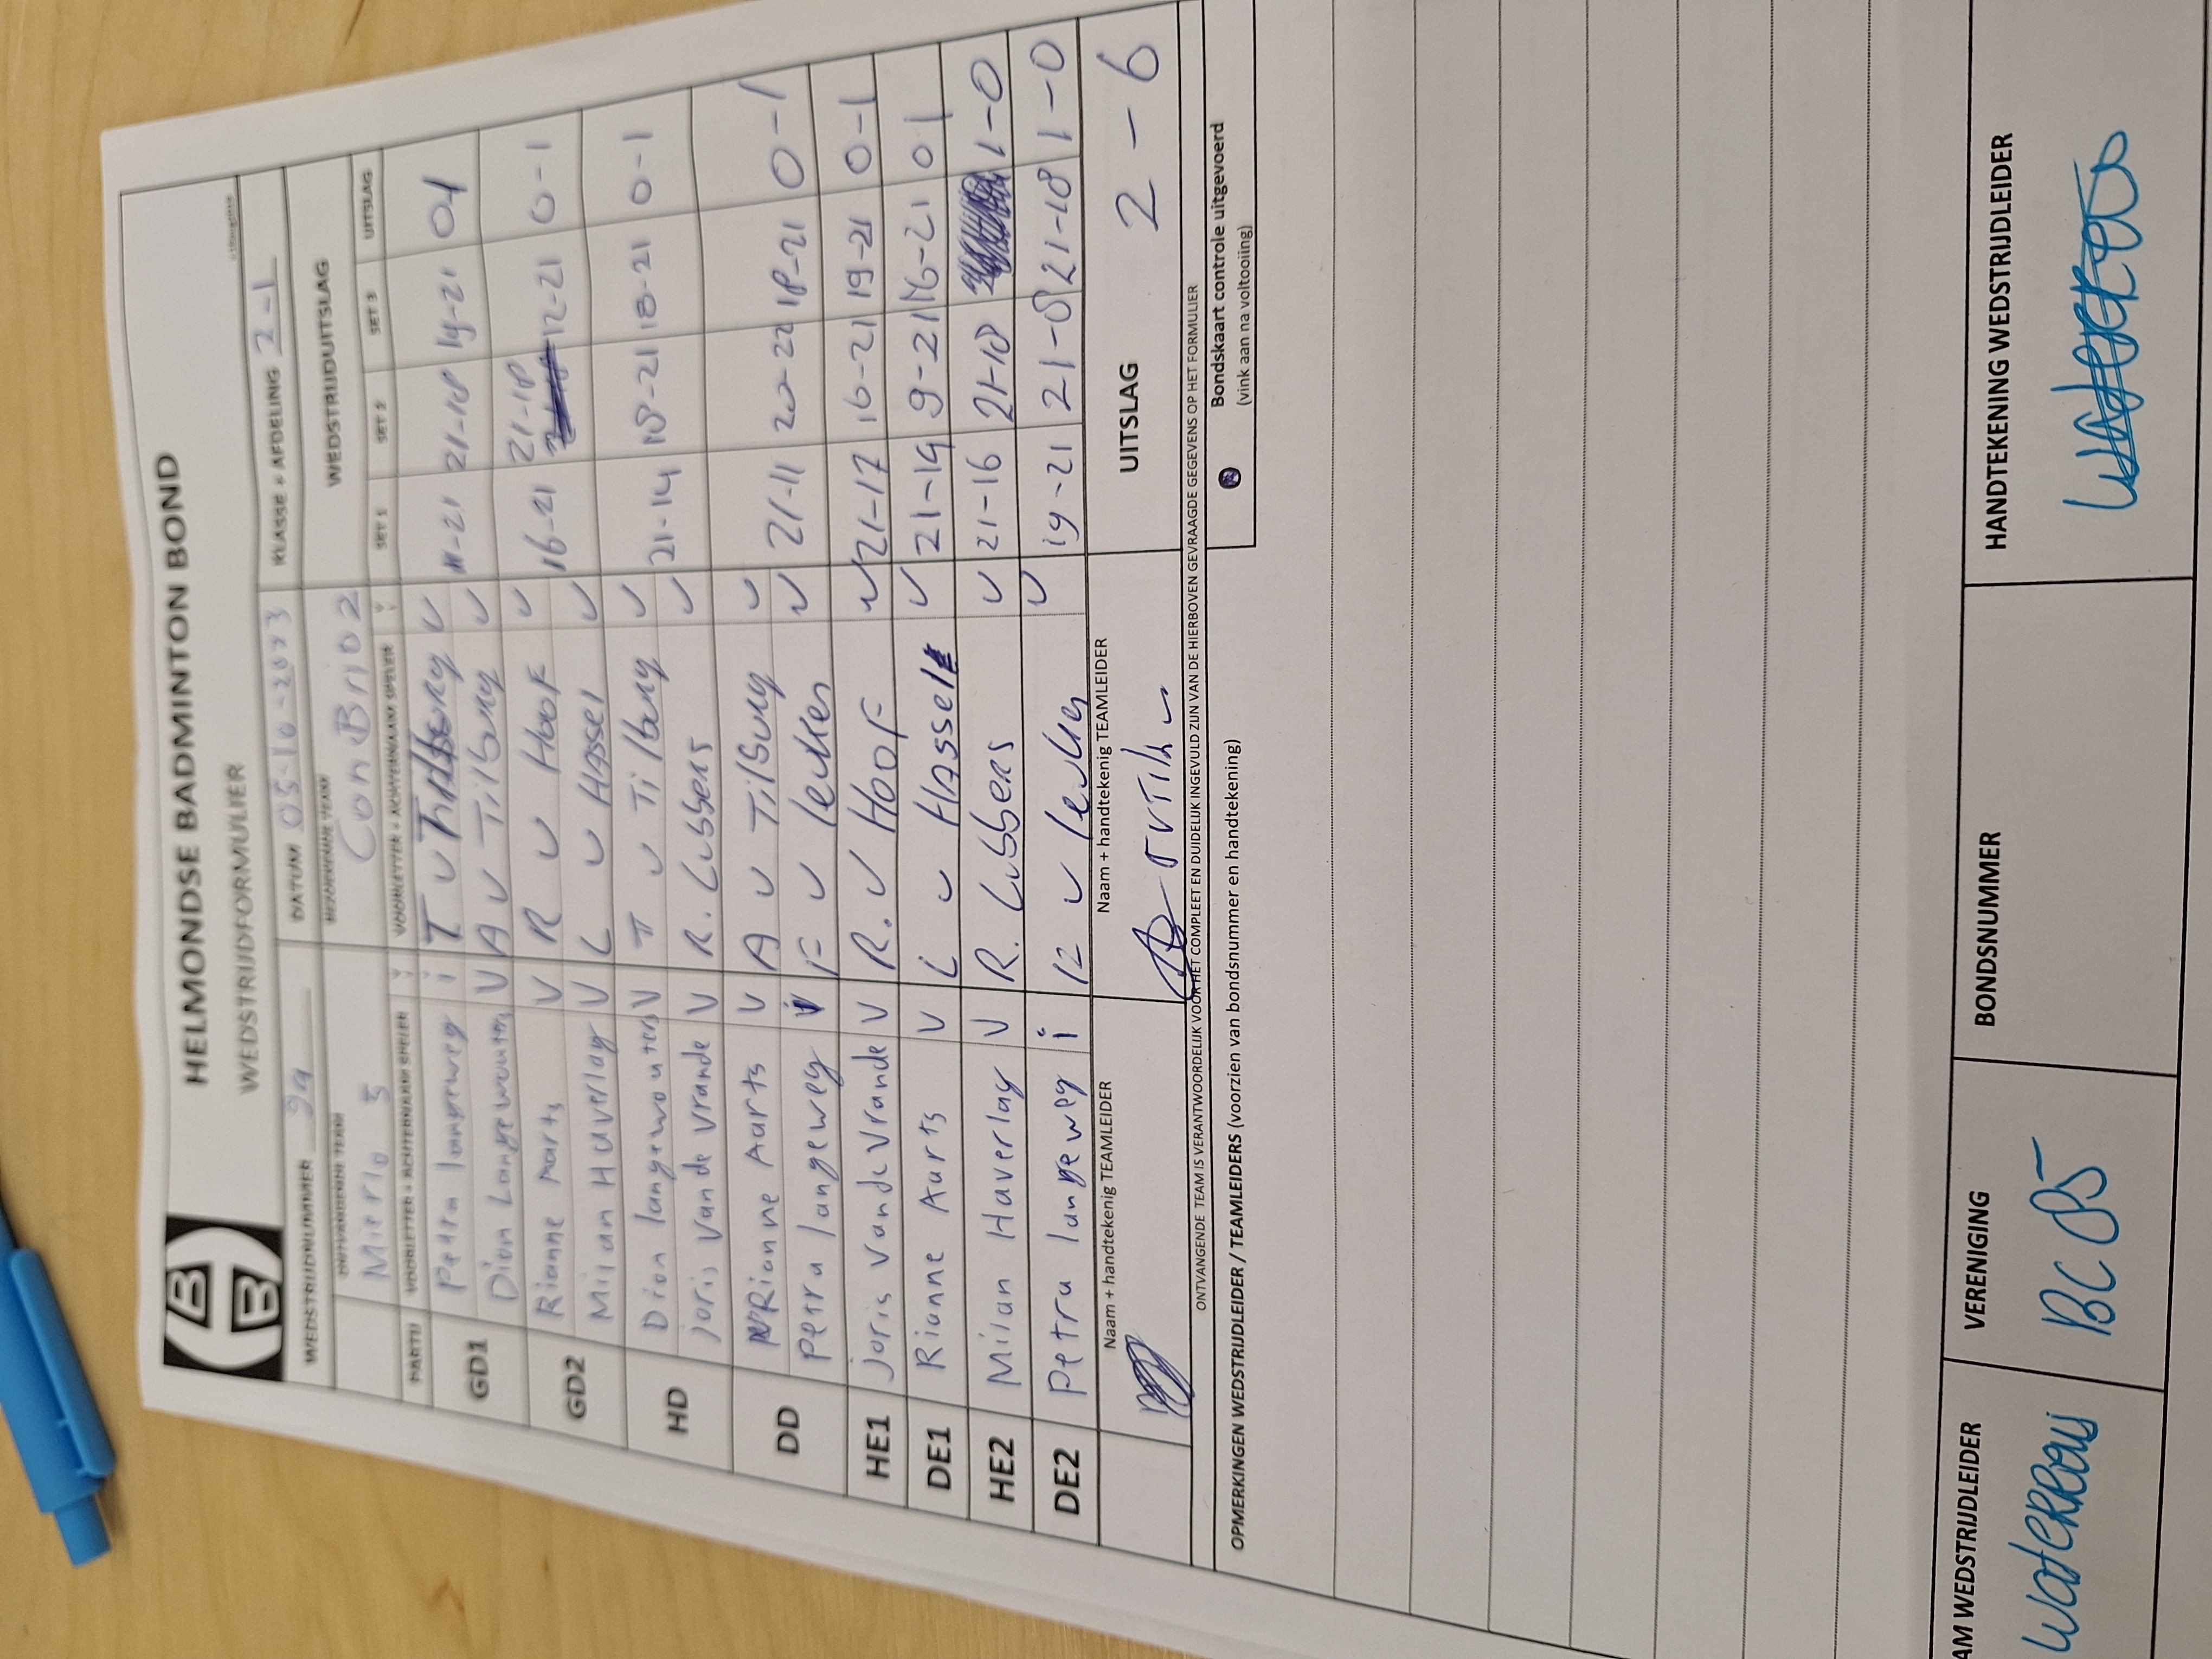 HELMONDSE BADMINTON BOND
WEDSTRIJDFORMULIER
WEDSTRIJDNUMMER 94 DATUM 05-10-2023 KLASSE + AFDELING 2-1
ONTVANGENDE TEAM BEZOEKENDE TEAM WEDSTRIJDUITSLAG
Mierlo 5 ConBrio 2
PARTIJ VOORLETTER + ACHTERNAAM SPELER VOORLETTER + ACHTERNAAM SPELER SET 1 SET 2 SET 3 UITSLAG
GD1 Petra langeweg i T v Tilburg v 11-21 21-18 19-21 0-1
Dion Langewouters V A v Tilburg v
GD2 Rianne Aarts V R v Hoof v 16-21 21-18 12-21 0-1
Milan Haverlag V L v Hassel v
HD Dion langewouters V T v Tilburg v 21-14 18-21 18-21 0-1
Joris van de Vrande V R. Lubbers v
DD Rianne Aarts V A v Tilburg v 21-11 20-22 18-21 0-1
Petra langeweg i F v v
HE1 Joris van de Vrande V R. v Hoof v 21-17 16-21 19-21 0-1
DE1 Rianne Aarts V L v Hassel v 21-19 9-21 16-21 0 1
HE2 Milan Haverlag V R. Lubbers v 21-16 21-18 1-0
DE2 Petra langeweg i F v v 19-21 21-8 21-18 1-0
Naam + handtekenig TEAMLEIDER Naam + handtekenig TEAMLEIDER UITSLAG 2 - 6
ONTVANGENDE TEAM IS VERANTWOORDELIJK VOOR HET COMPLEET EN DUIDELIJK INGEVULD ZIJN VAN DE HIERBOVEN GEVRAAGDE GEGEVENS OP HET FORMULIER
OPMERKINGEN WEDSTRIJDLEIDER / TEAMLEIDERS (voorzien van bondsnummer en handtekening)
Bondskaart controle uitgevoerd
(vink aan na voltooiing)
AM WEDSTRIJDLEIDER VERENIGING BONDSNUMMER HANDTEKENING WEDSTRIJDLEIDER
BC 85